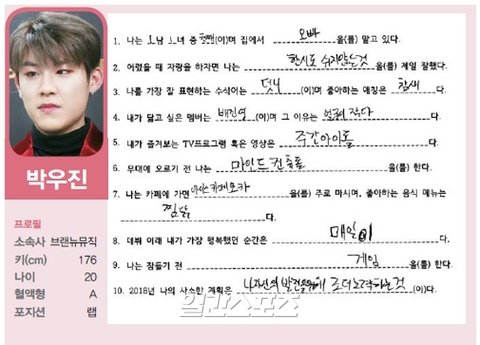 박우진
프로필
소속사 브랜뉴뮤직
키(cm) 176
나이 20
혈액형 A
포지션 랩
1. 나는 1남 1녀 중 첫째(이)며 집에서 오빠 을(를) 맡고 있다.
2. 어렸을 때 자랑을 하자면 나는 한시도 쉬지않는것 을(를) 제일 잘했다.
3. 나를 가장 잘 표현하는 수식어는 덧니 (이)며 좋아하는 애칭은 참새 다.
4. 내가 닮고 싶은 멤버는 배진영 (이)며 그 이유는 얼굴이 작다 다.
5. 내가 즐겨보는 TV프로그램 혹은 영상은 주간아이돌 다.
6. 무대에 오르기 전 나는 마인드 컨트롤 을(를) 한다.
7. 나는 카페에 가면 아이스 카페모카 을(를) 주로 마시며, 좋아하는 음식 메뉴는
찜닭 다.
8. 데뷔 이래 내가 가장 행복했던 순간은 매일 이 다.
9. 나는 잠들기 전 게임 을(를) 한다.
10. 2018년 나의 사소한 계획은 나자신의 발전을위해 조금더노력하는것 (이)다.
일간스포츠